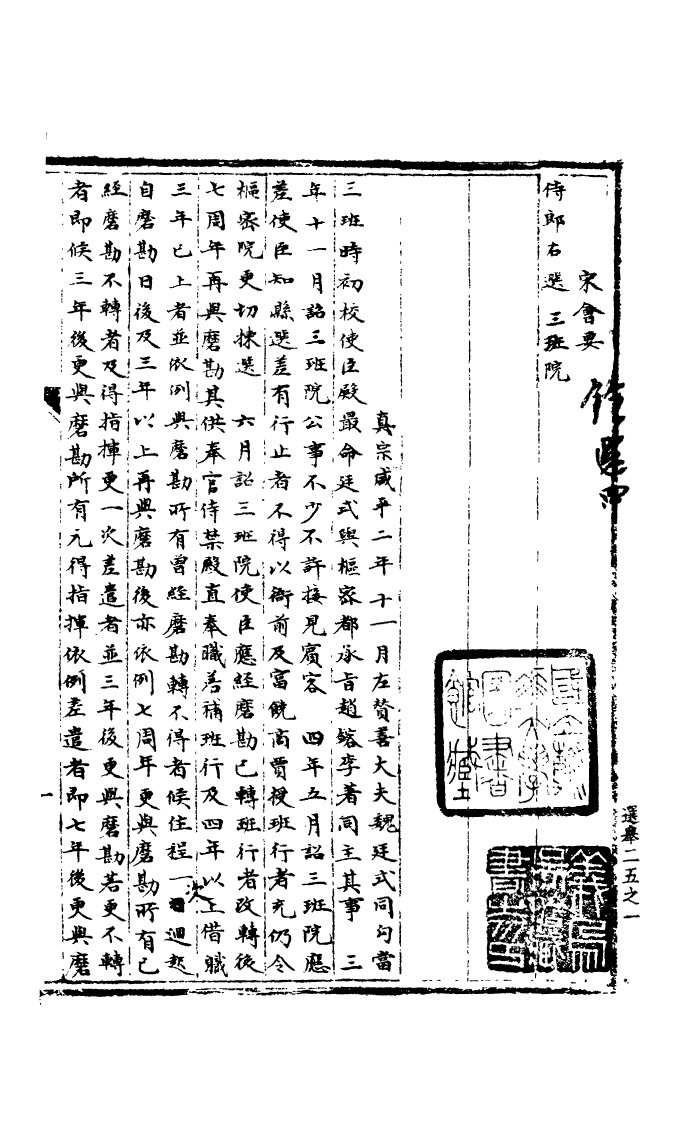 宋會要
侍郎右選 三班院
真宗咸平二年十一月左贊善大夫魏廷式同勾當
三班時初校使臣殿最命廷式與樞密都承旨趙鎔李著同主其事 三
年十一月詔三班院公事不少不許接見賓客 四年五月詔三班院應
差使臣知縣選差有行止者不得以衙前及富饒商賈授班行者充仍令
樞密院更切揀選 六月詔三班院使臣應經磨勘已轉班行者改轉後
七周年再與磨勘其供奉官侍禁殿直奉職善補班行及四年以上借職
三年已上者並依例與磨勘所有曾經磨勘轉不得者候住程一次迴起
自磨勘日後及三年以上再與磨勘後亦依例七周年更與磨勘所有已
經磨勘不轉者及得指揮更一次差遣者並三年後更與磨勘若更不轉
者即候三年後更與磨勘所有元得指揮依例差遣者即七年後更與磨
一
選舉二五之一